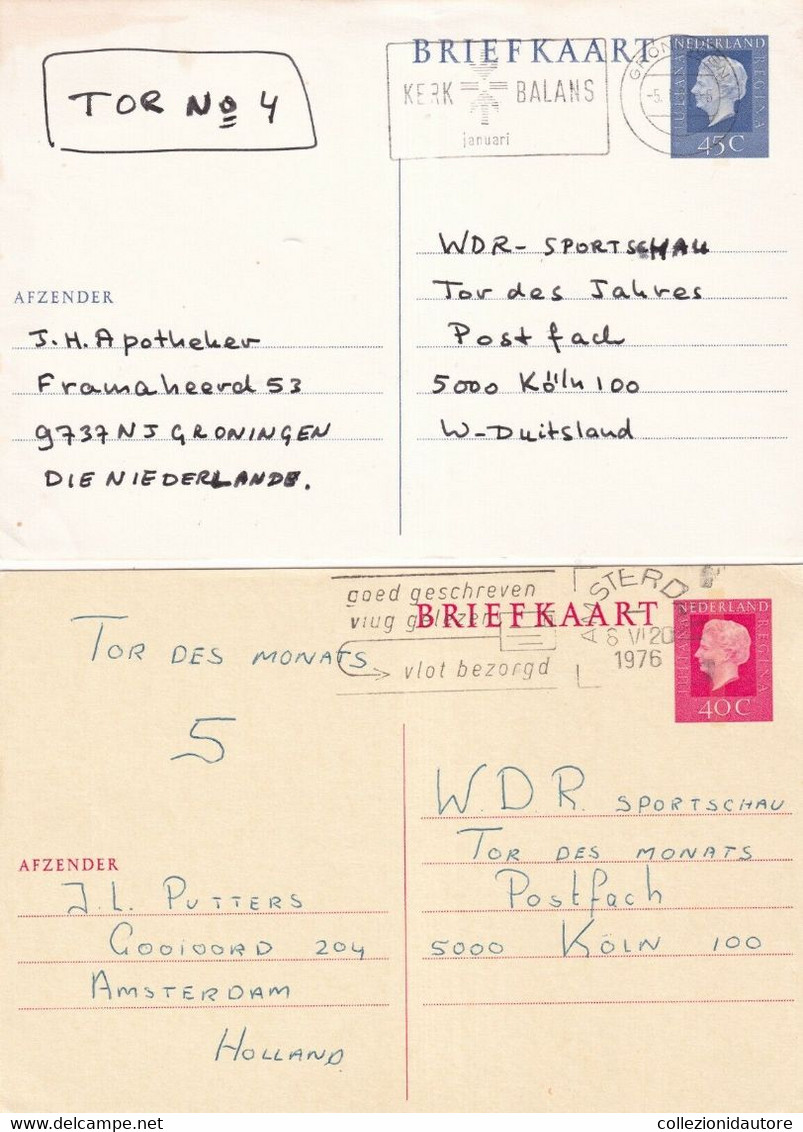 BRIEFKAART
TOR No 4
KERK BALANS
januari
NEDERLAND
JULIANA REGINA
45 C
WDR- SPORTSCHAU
Tor des Jahres
Postfach
5000 Köln 100
W-Duitsland
AFZENDER
J.H. Apotheker
Framaheerd 53
9737 NJ GRONINGEN
DIE NIEDERLANDE.
goed geschreven
vlug gelezen
vlot bezorgd
BRIEFKAART
AMSTERD
1976
NEDERLAND
JULIANA REGINA
40 C
TOR DES MONATS
5
W.D.R. SPORTSCHAU
TOR DES MONATS
Postfach
5000 KÖLN 100
AFZENDER
J.L. PUTTERS
GOOIOORD 204
AMSTERDAM
HOLLAND
www.delcampe.net
collezionidautore